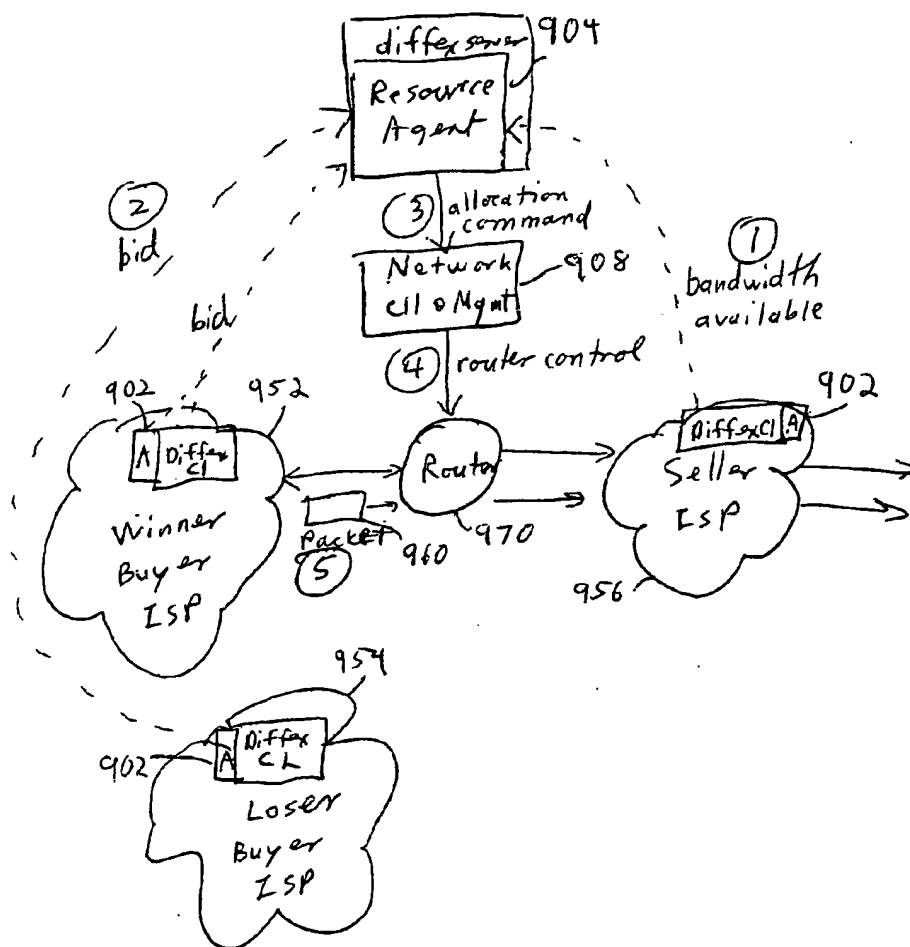 diffex server
904
Resource
Agent
2
bid
bid
3
allocation
command
Network
Ctl & Mgmt
908
1
bandwidth
available
4
router control
902
952
902
A
Diffex
Cl
Winner
Buyer
ISP
Router
970
Packet
960
5
DiffexCl
A
Seller
ISP
956
954
902
A
Diffex
CL
Loser
Buyer
ISP